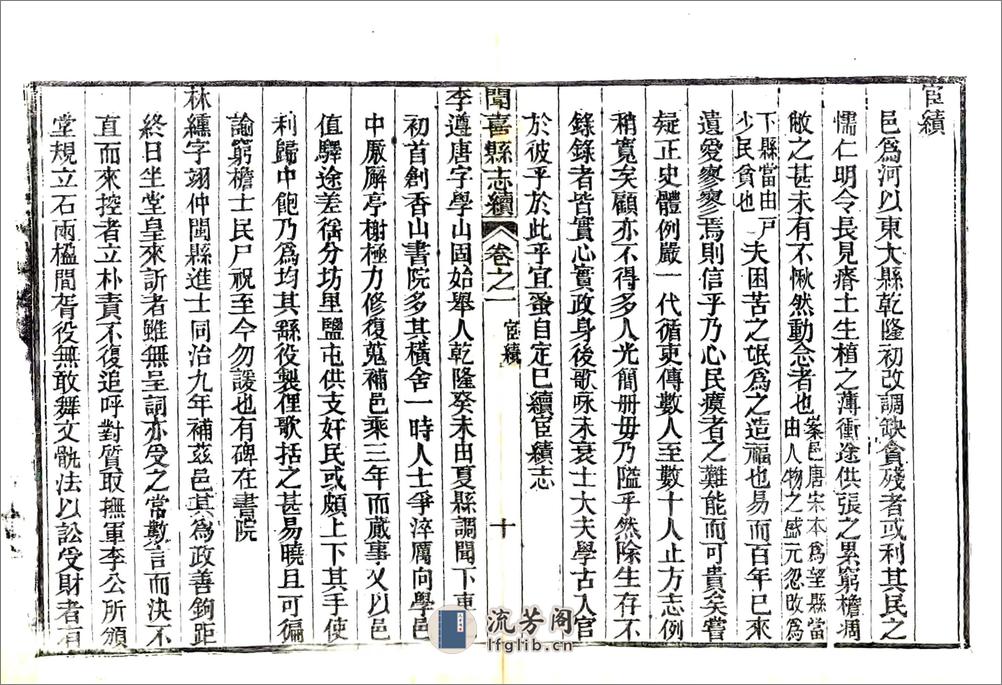 宦績
邑爲河以東大縣乾隆初改調缺貪殘者或利其民之
懦仁明令長見瘠土生植之薄衝途供張之累窮檐凋
敝之甚未有不愀然動念者也案邑唐宋本爲望縣當由人物之盛元忽改爲
下縣當由戶少民貧也夫困苦之氓爲之造福也易而百年已來
遺愛寥寥焉則信乎乃心民瘼者之難能而可貴矣嘗
疑正史體例嚴一代循吏傳數人至數十人止方志例
稍寬矣顧亦不得多人光簡冊毋乃隘乎然除生存不
錄錄者皆實心實政身後歌咏未衰士大夫學古入官
於彼乎於此乎宜蚤自定已續宦績志
聞喜縣志續 卷之一 宦績 十
李遵唐字學山固始舉人乾隆癸未由夏縣調聞下車
初首創香山書院多其橫舍一時人士爭淬厲向學邑
中厥廨亭榭極力修復蒐補邑乘三年而蕆事又以邑
值驛途差徭分坊里鹽屯供支奸民或頗上下其手使
利歸中飽乃爲均其繇役製俚歌括之甚易曉且可徧
諭窮檐士民尸祝至今勿諼也有碑在書院
林纁字翊仲閩縣進士同治九年補茲邑其爲政善鉤距
終日坐堂皇來訴者雖無呈詞亦受之常數言而決不
直而來控者立朴責不復追呼對質取撫軍李公所頒
堂規立石兩楹間胥役無敢舞文骫法以訟受財者有
流芳阁
lfglib.cn